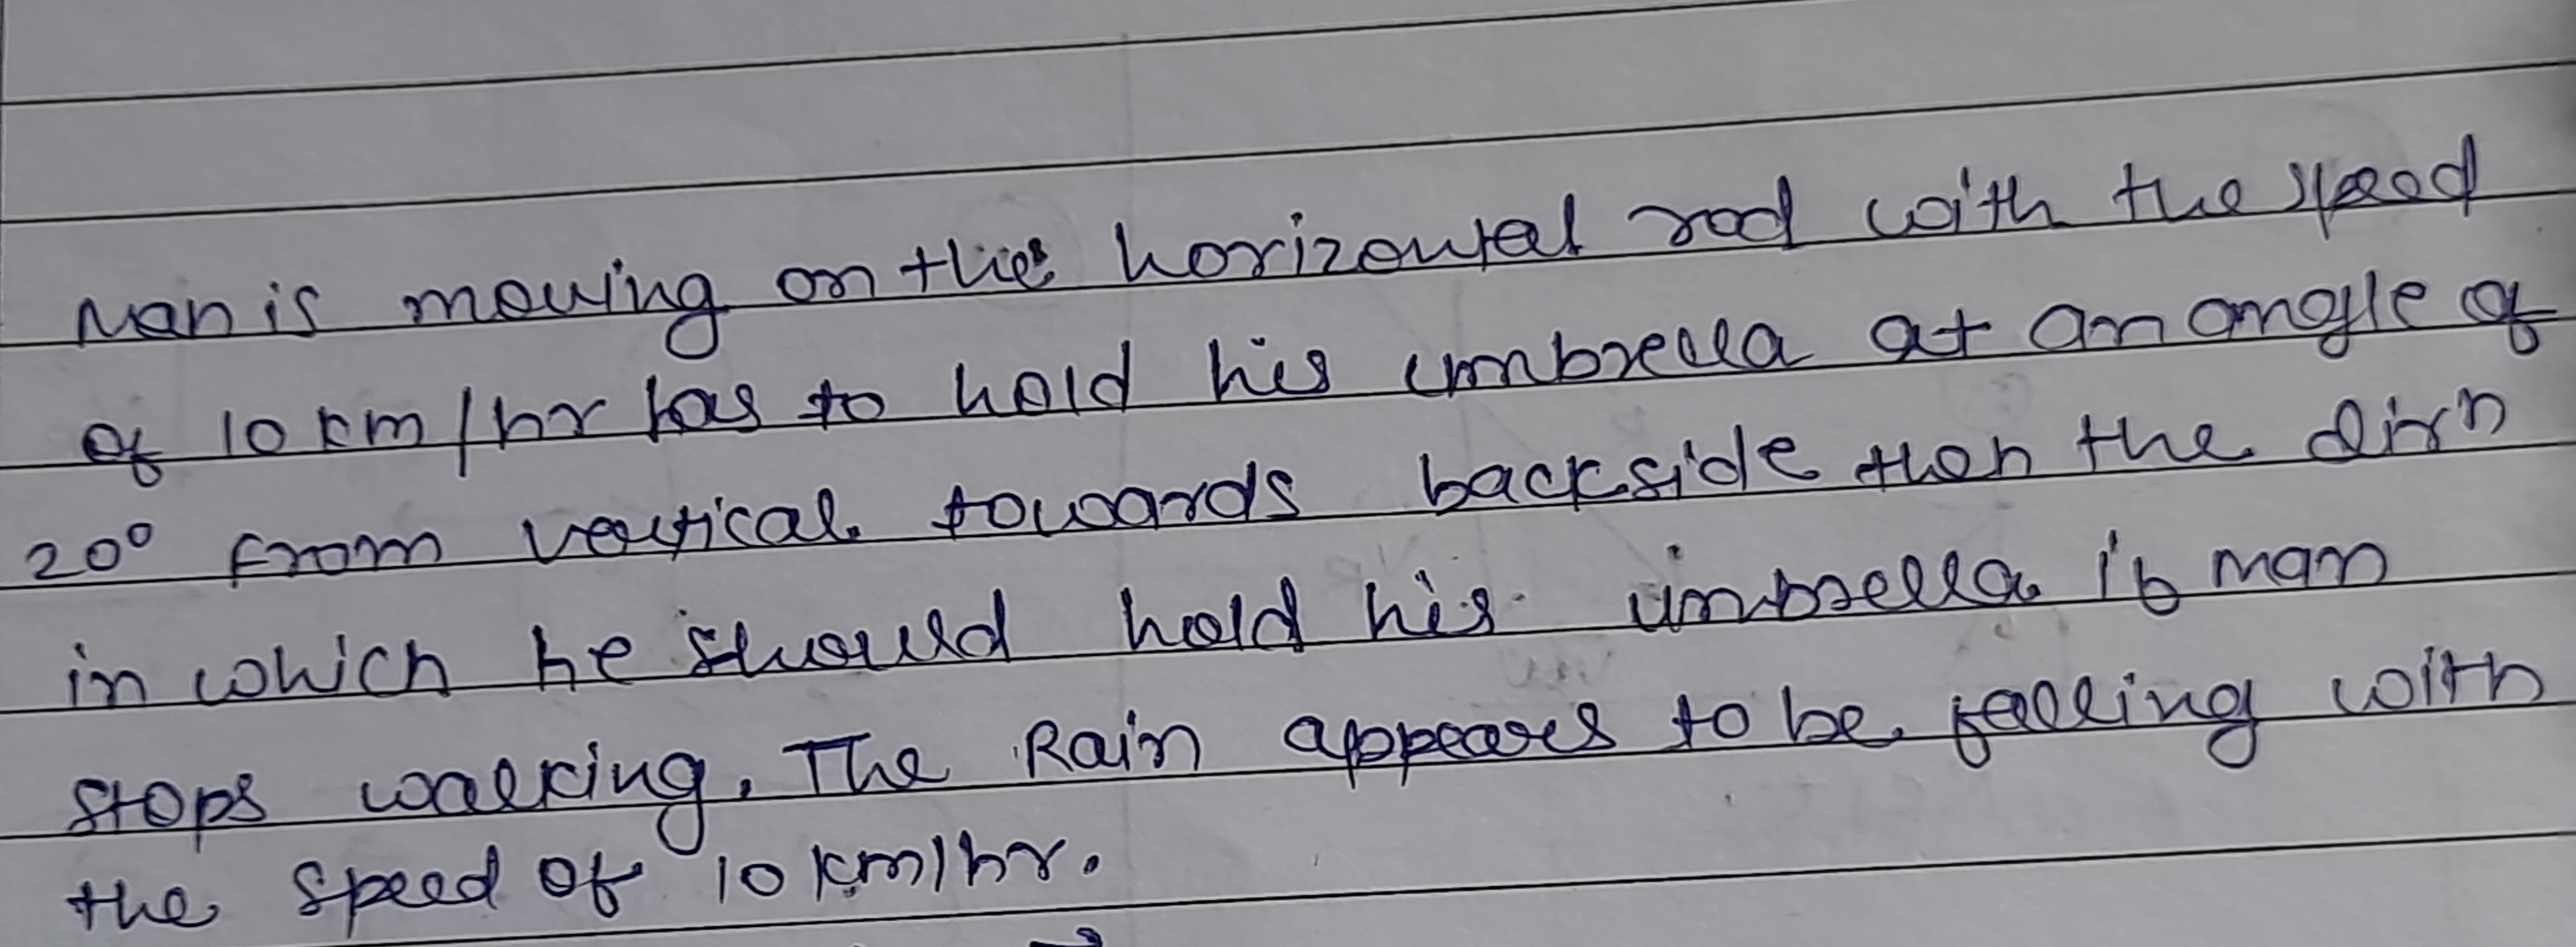 Man is moving on the horizontal rod with the speed
of 10 km/hr has to hold his umbrella at an angle of
20° from vertical towards backside then the dirn
in which he should hold his umbrella if man
stops walking. The Rain appears to be falling with
the speed of 10 km/hr.